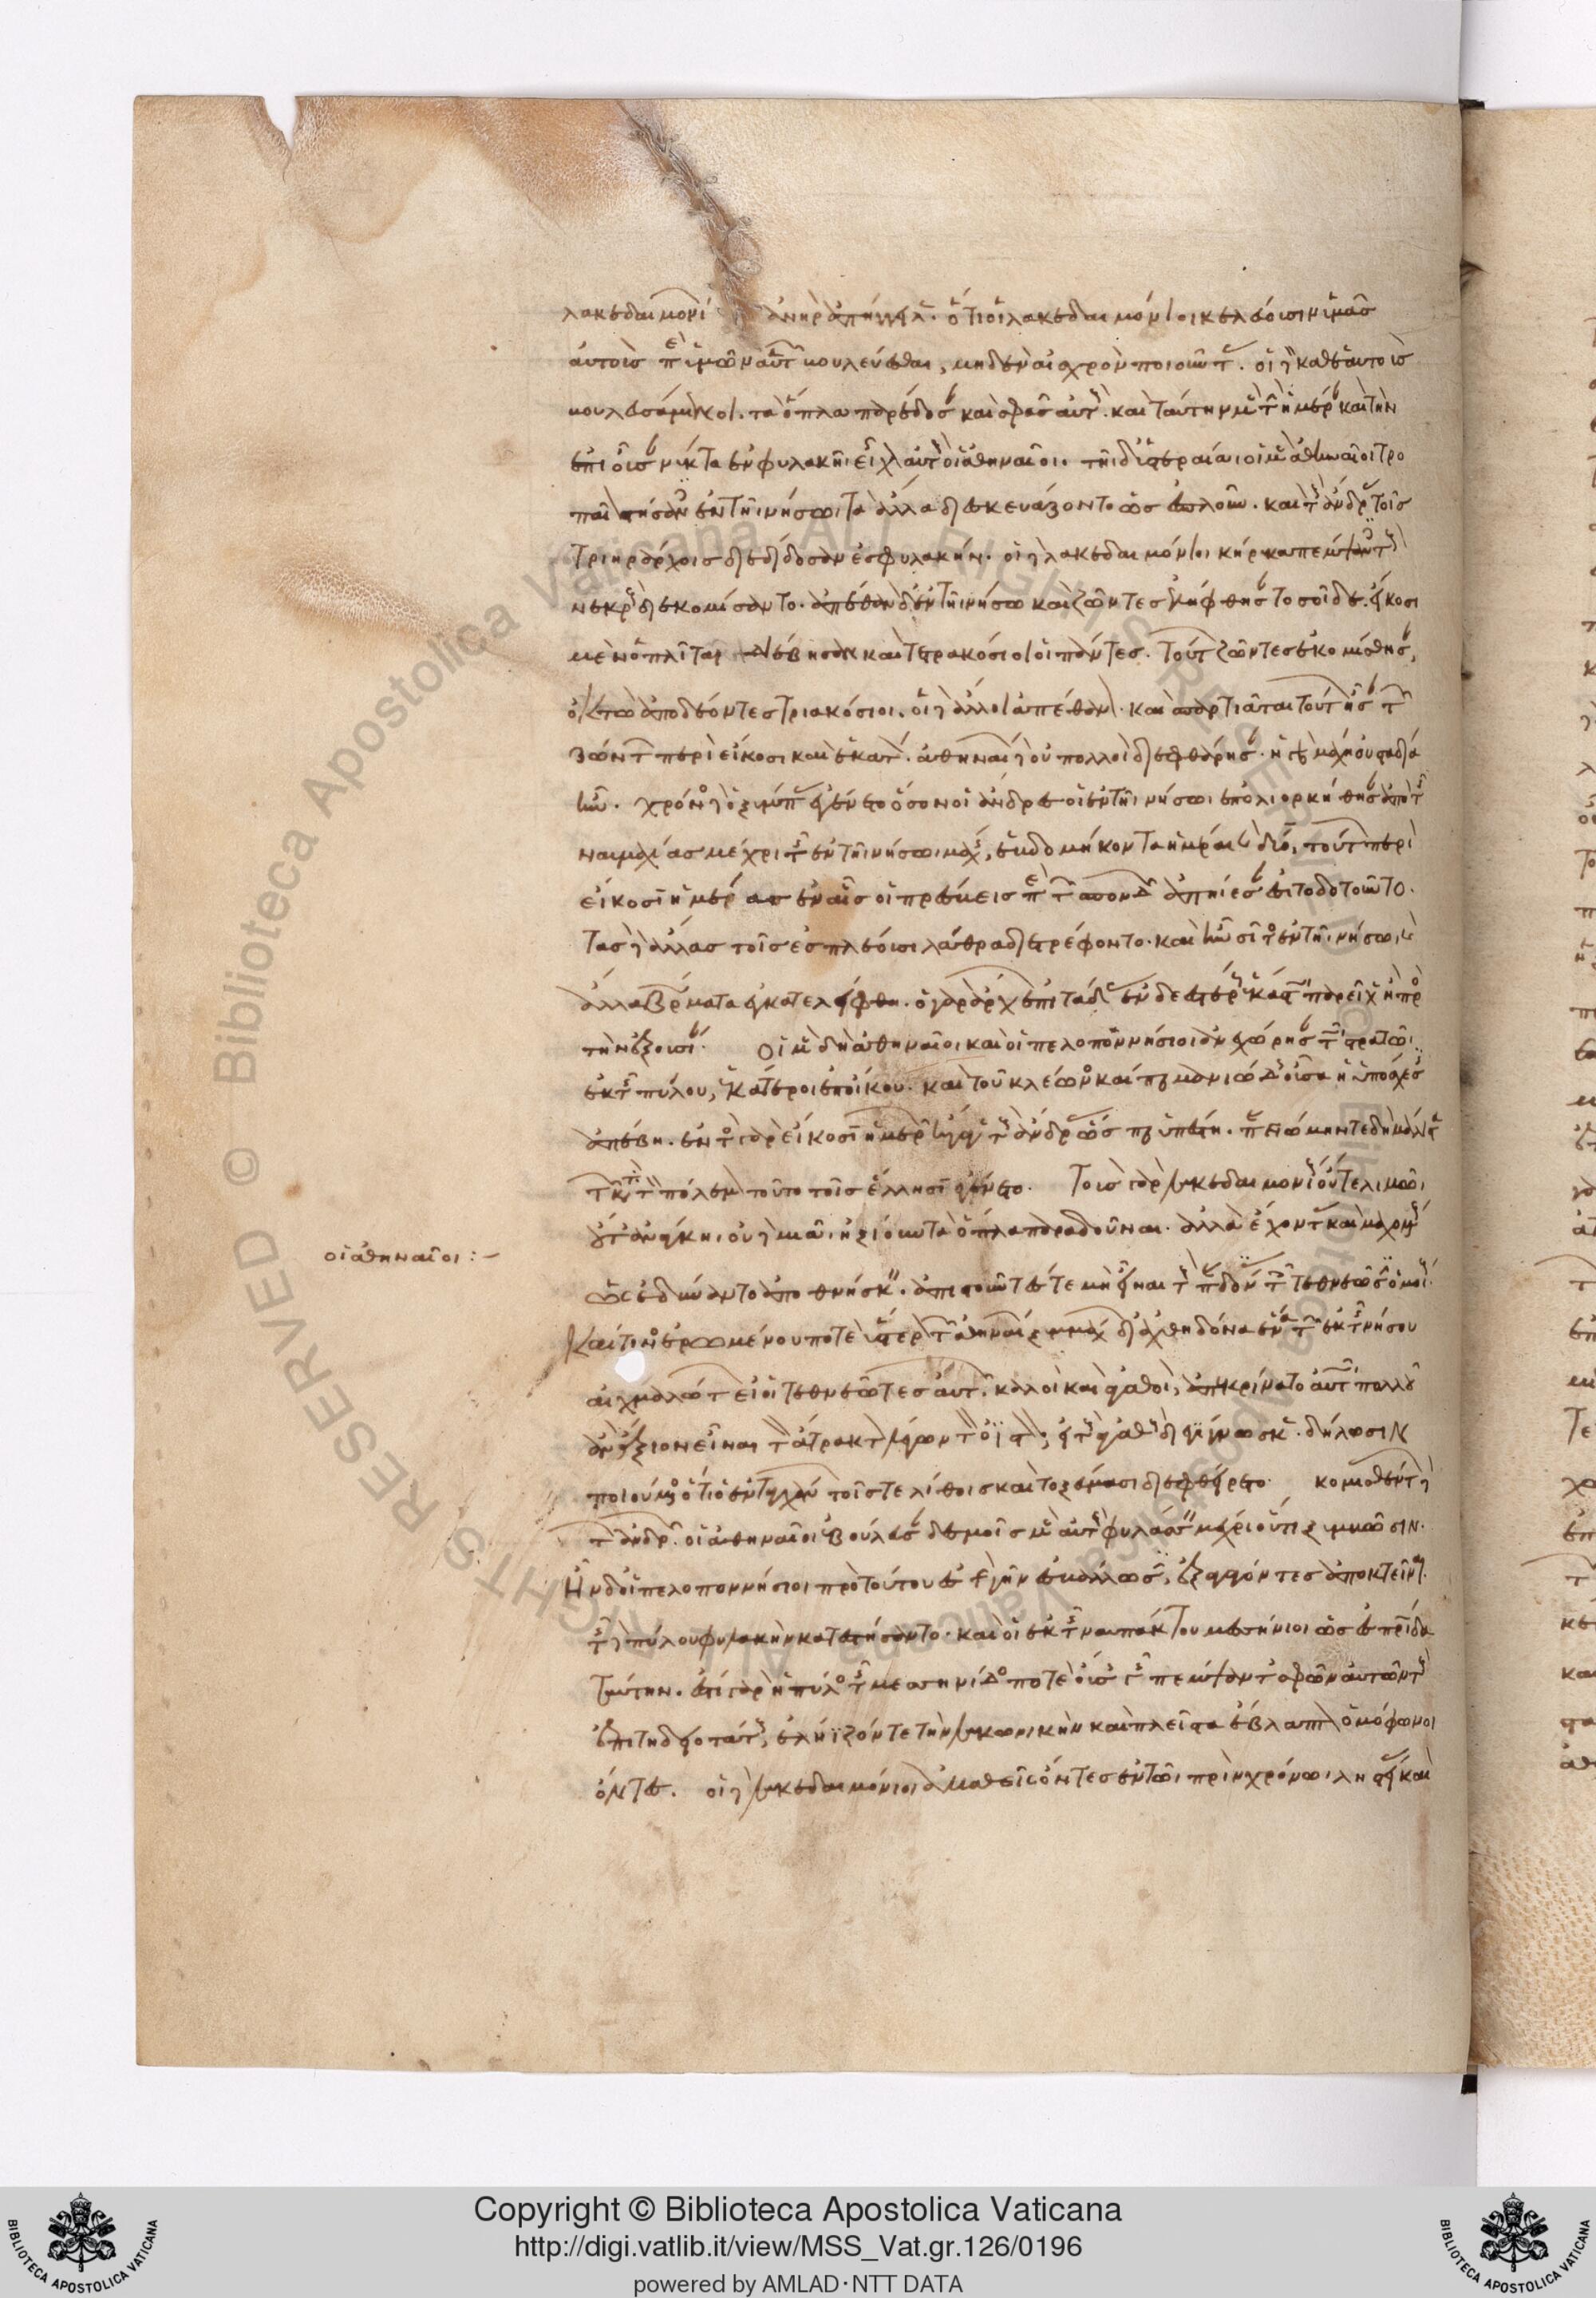 λακεδαιμονί ἀνὴρ ἀπήγγειλ. ὅτι οἱ λακεδαιμόνιοι κελεύουσιν ὑμᾶς
αὐτοὺς περὶ ὑμῶν αὐτῶν βουλεύεσθαι, μηδὲν αἰσχρὸν ποιοῦντας. οἱ δὲ καθ' ἑαυτοὺς
βουλευσάμενοι. τὰ ὅπλα παρέδοσαν καὶ σφᾶς αὐτούς. καὶ ταύτην μὲν τὴν ἡμέραν καὶ τὴν
ἐπιοῦσαν νύκτα ἐν φυλακῆι εἶχον αὐτοὺς οἱ ἀθηναῖοι. τῆι δ' ὑστεραίαι οἱ μὲν ἀθηναῖοι τρο
παῖον στήσαντες ἐν τῆι νήσωι τἆλλα διεσκευάζοντο ὡς ἐς πλοῦν. καὶ τοὺς ἄνδρας τοῖς
τριηράρχοις διεδίδοσαν ἐς φυλακήν. οἱ δὲ λακεδαιμόνιοι κήρυκα πέμψαντες τοὺς
νεκροὺς διεκομίσαντο. ἀπέθανον δ' ἐν τῆι νήσω καὶ ζῶντες ἐλήφθησαν τοσοίδε. εἴκοσι
μὲν ὁπλῖται διέβησαν καὶ τετρακόσιοι οἱ πάντες. τούτων ζῶντες ἐκομίσθησαν,
ὀκτὼ ἀποδέοντες τριακόσιοι. οἱ δὲ ἄλλοι ἀπέθανον. καὶ σπαρτιᾶται τούτων ἦσαν τῶν
ζώντων περὶ εἴκοσι καὶ ἑκατόν. ἀθηναίων δὲ οὐ πολλοὶ διεφθάρησαν. ἡ γὰρ μάχη οὐ σταδία
ἦν. χρόνος δὲ ὁ ξύμπας ἐγένετο ὅσον οἱ ἄνδρες οἱ ἐν τῆι νήσωι ἐπολιορκήθησαν ἀπὸ τῆς
ναυμαχίας μέχρι τῆς ἐν τῆι νήσωι μάχης, ἑβδομήκοντα ἡμέραι καὶ δύο, τούτων περὶ
εἴκοσι ἡμέρας ἐν αἷς οἱ πρέσβεις περὶ τῶν σπονδῶν ἀπηίεσαν ἐσιτοδοτοῦντο.
τὰς δὲ ἄλλας τοῖς ἐσπλέουσι λάθρα διετρέφοντο. καὶ ἦν σῖτος ἐν τῆι νήσωι, καὶ
ἄλλα βρώματα ἐγκατελήφθη. ὁ γὰρ ἄρχων ἐπιτάδας ἐνδεεστέρως ἑκάστω παρεῖχεν ἢ πρὸς
τὴν ἐξουσίαν. οἱ μὲν δὴ ἀθηναῖοι καὶ οἱ πελοποννήσιοι ἀνεχώρησαν τῶ στρατῶι
ἐκ τῆς πύλου, ἑκάτεροι ἐπ' οἴκου. καὶ τοῦ κλέωνος καίπερ μανιώδης οὖσα ἡ ὑπόσχεσις
ἀπέβη. ἐντὸς γὰρ εἴκοσι ἡμερῶν ἤγαγε τοὺς ἄνδρας ὥσπερ ὑπέστη. παρὰ γνώμην τε δὴ μάλιστα
τῶν κατὰ τὸν πόλεμον τοῦτο τοῖς ἕλλησιν ἐγένετο. τοὺς γὰρ λακεδαιμονίους οὔτε λιμῶι
οὔτ' ἀνάγκηι οὐδεμιᾶι ἠξίουν τὰ ὅπλα παραδοῦναι. ἀλλὰ ἔχοντας καὶ μαχομένους
οἱ ἀθηναῖοι :-
ὡς ἐδύναντο ἀποθνήσκειν. ἀπιστοῦντές τε μὴ εἶναι τοὺς παραδόντας τοῖς τεθνεῶσιν ὁμοίους.
καί τινος ἐρομένου ποτὲ ὕστερον τῶν ἀθηναίων ξυμμάχων δι' ἀχθηδόνα ἕνα τῶν ἐκ τῆς νήσου
αἰχμαλώτων εἰ οἱ τεθνεῶτες αὐτῶν καλοὶ καὶ ἀγαθοὶ, ἀπεκρίνατο αὐτῶ πολλοῦ
ἂν ἄξιον εἶναι τὸν ἄτρακτον λέγων τὸν ὀϊστόν, εἰ τοὺς ἀγαθοὺς διεγίγνωσκε. δήλωσιν
ποιούμενος ὅτι ὁ ἐντυγχάνων τοῖς τε λίθοις καὶ τοξεύμασι διεφθείρετο. κομισθέντων δὲ
τῶν ἀνδρῶν οἱ ἀθηναῖοι ἐβούλευσαν δεσμοῖς μὲν αὐτοὺς φυλάσσειν μέχρι οὗ τι ξυμβῶσιν.
ἢν δ' οἱ πελοποννήσιοι πρὸ τούτου ἐς τὴν γῆν ἐσβάλλωσιν, ἐξαγαγόντες ἀποκτεῖναι.
τῆς δὲ πύλου φυλακὴν κατεστήσαντο. καὶ οἱ ἐκ τῆς ναυπάκτου μεσσήνιοι ὡς ἐς πατρίδα
ταύτην. ἔστι γὰρ ἡ πύλος τῆς μεσσηνίδος ποτὲ οὔσης γῆς πέμψαντες σφῶν αὐτῶν τοὺς
ἐπιτηδειοτάτους, ἐλήϊζόν τε τὴν λακωνικὴν καὶ πλεῖστα ἔβλαπτον ὁμόφωνοι
ὄντες. οἱ δὲ λακεδαιμόνιοι ἀμαθεῖς ὄντες ἐν τῶι πρὶν χρόνωι ληστείας καὶ